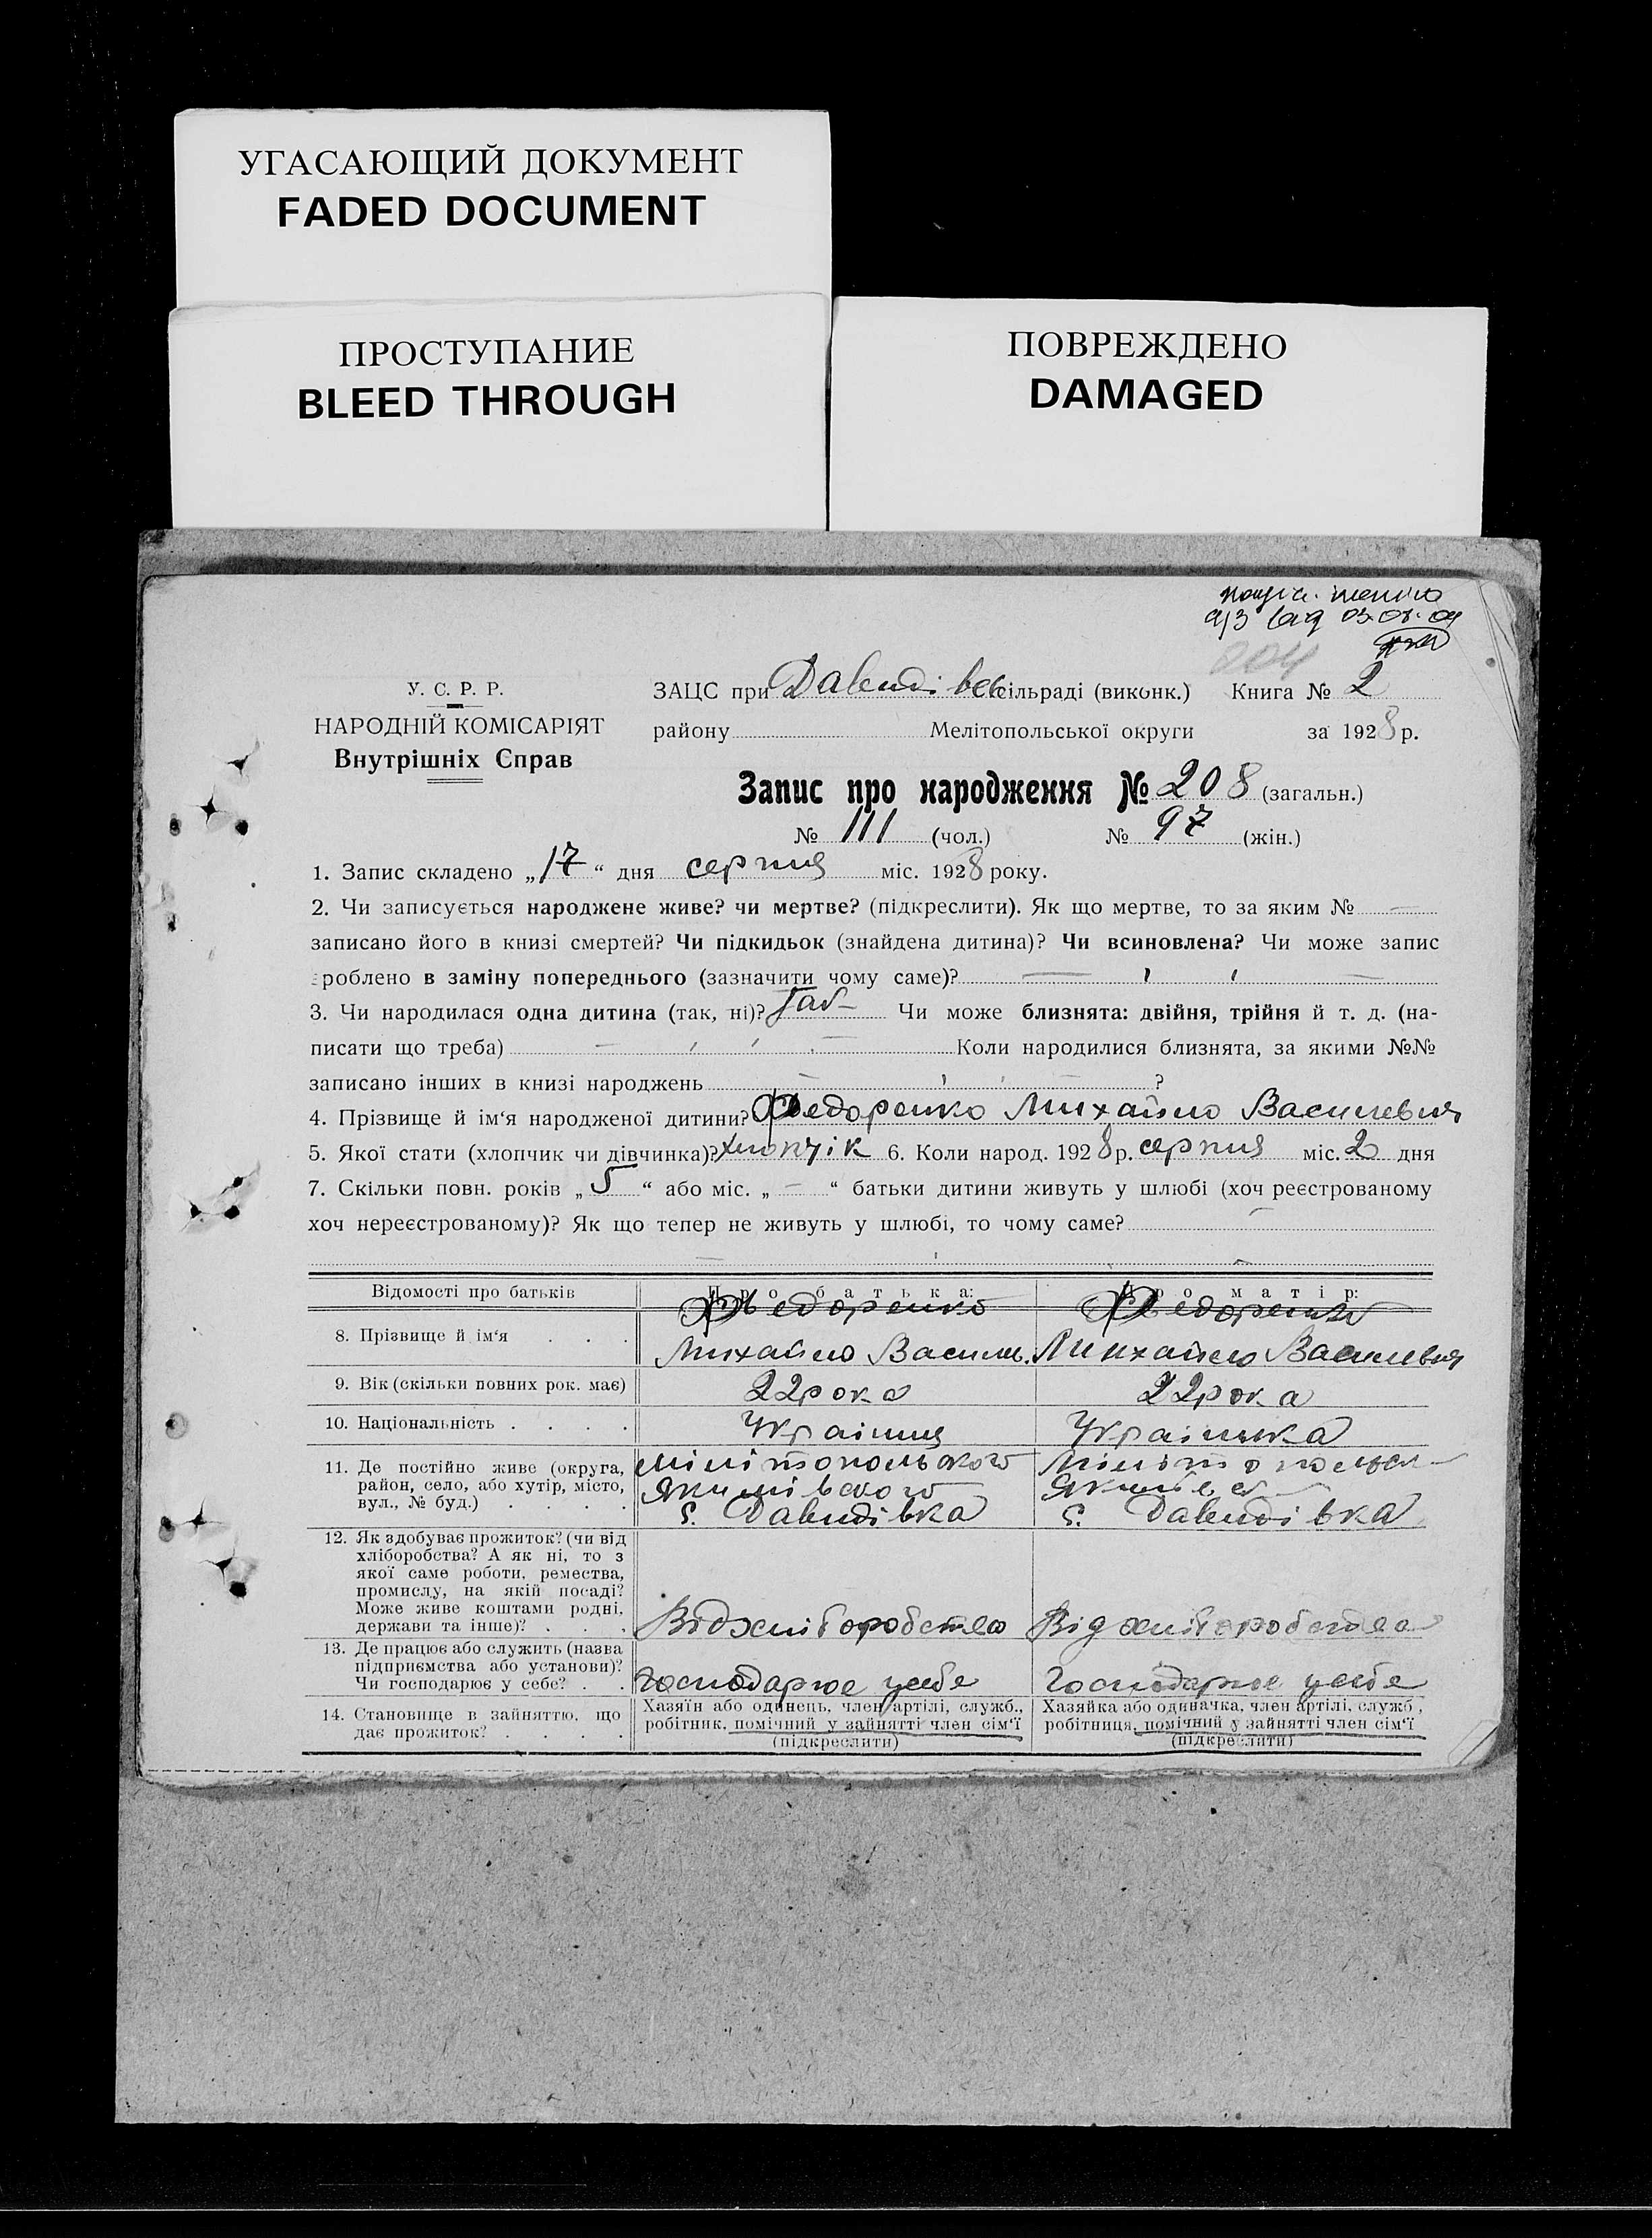 УГАСАЮЩИЙ ДОКУМЕНТ
FADED DOCUMENT
ПРОСТУПАНИЕ
BLEED THROUGH
ПОВРЕЖДЕНО
DAMAGED
03.07.09
204
У. С. Р. Р.
НАРОДНІЙ КОМІСАРІЯТ
Внутрішніх Справ
ЗАЦС при Давидівск сільраді (виконк.) Книга № 2
району Мелітопольської округи за 1928 р.
Запис про народження № 208 (загальн.)
№ 111 (чол.) № 97 (жін.)
1. Запис складено „17“ дня серпня міс. 1928 року.
2. Чи записується народжене живе? чи мертве? (підкреслити). Як що мертве, то за яким № —
записано його в книзі смертей? Чи підкидьок (знайдена дитина)? Чи всиновлена? Чи може запис
зроблено в заміну попереднього (зазначити чому саме)?
3. Чи народилася одна дитина (так, ні)? Так Чи може близнята: двійня, трійня й т. д. (на-
писати що треба) Коли народилися близнята, за якими №№
записано інших в книзі народжень ?
4. Прізвище й ім‘я народженої дитини? Федоренко Михайло Василевич
5. Якої стати (хлопчик чи дівчинка)? хлопчік 6. Коли народ. 1928 р. серпня міс. 2 дня
7. Скільки повн. років „5“ або міс. „—“ батьки дитини живуть у шлюбі (хоч реєстрованому
хоч нереєстрованому)? Як що тепер не живуть у шлюбі, то чому саме?
Відомості про батьків Про батька: Про матір:
8. Прізвище й ім‘я . . . Федоренко Михайло Василь. Федоренко Михайло Василевич
9. Вік (скільки повних рок. має) 22 рока 22 рока
10. Національність . . . . Україниц Українка
11. Де постійно живе (округа,
район, село, або хутір, місто,
вул., № буд.) . . . .
Мілітопольского
Якимівского
с. Давидівка
Мілітопольск
Якимівс
с. Давидівка
12. Як здобуває прожиток? (чи від
хліборобства? А як ні, то з
якої саме роботи, ремества,
промислу, на якій посаді?
Може живе коштами родні,
держави та інше)? . . .
Від хліборобства Від хліборобства
13. Де працює або служить (назва
підприємства або установи)?
Чи господарює у себе? . .
Господарює у себе Господарює у себе
14. Становище в зайняттю, що
дає прожиток? . . . .
Хазяїн або одинець, член артілі, служб.,
робітник, помічний у зайнятті член сім‘ї
(підкреслити)
Хазяйка або одиначка, член артілі, служб,
робітниця, помічний у зайнятті член сім‘ї
(підкреслити)